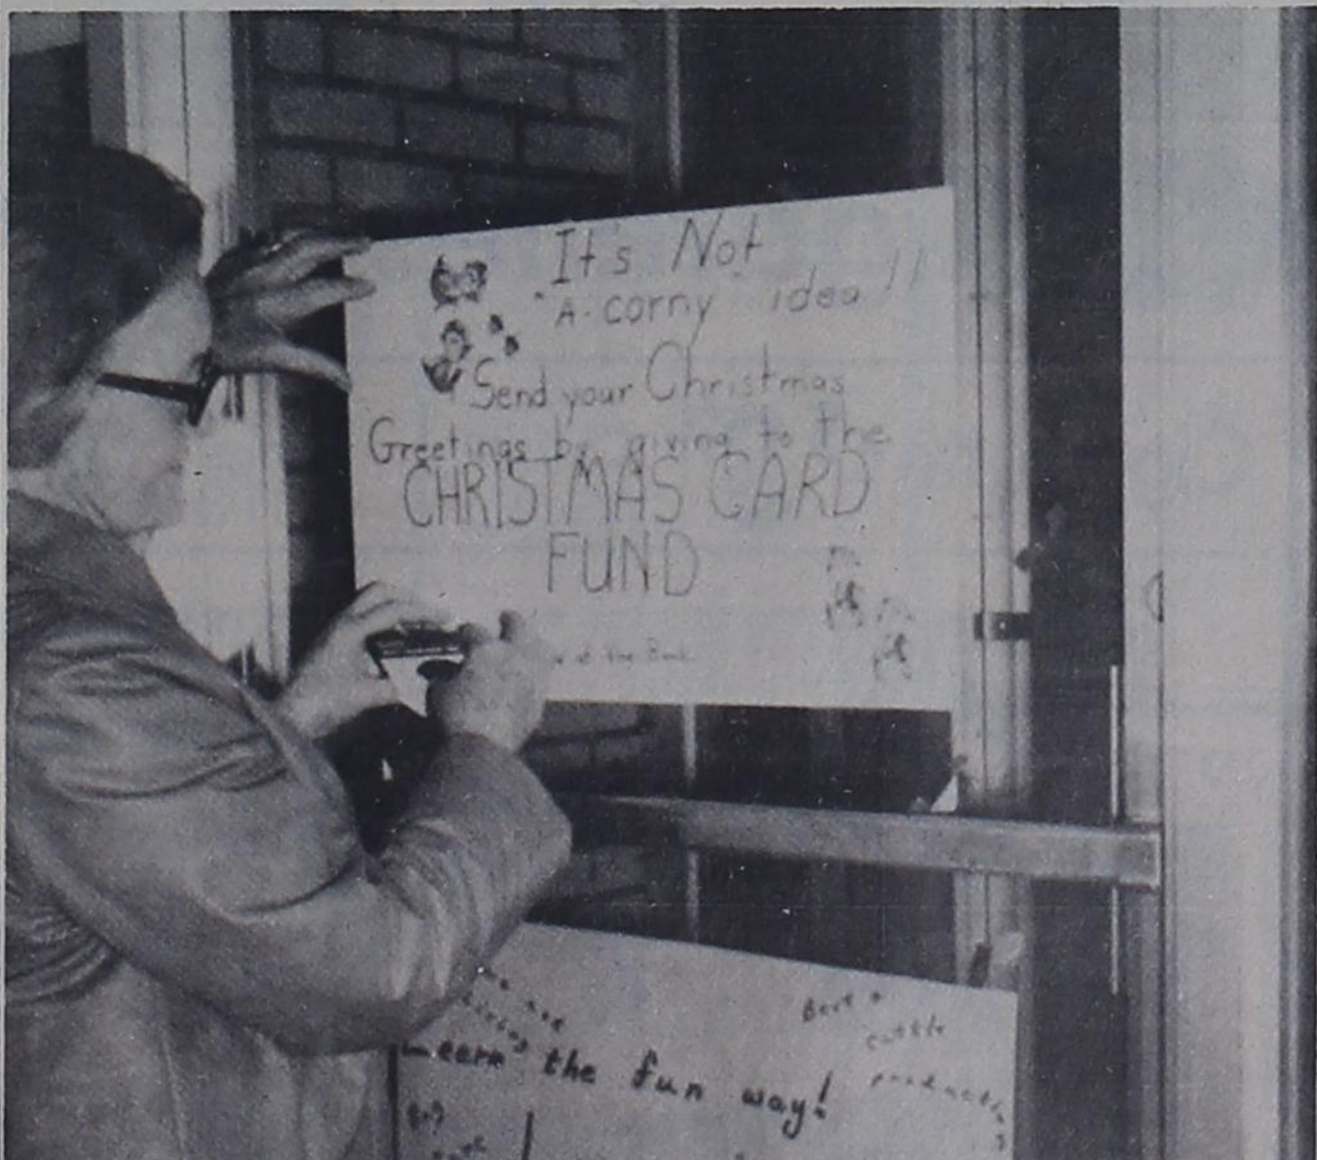 It's Not
"A-corny" idea!!
Send your Christmas
Greetings by giving to the
CHRISTMAS CARD
FUND
at the Bank
Learn the fun way!
Beef &
cattle
production